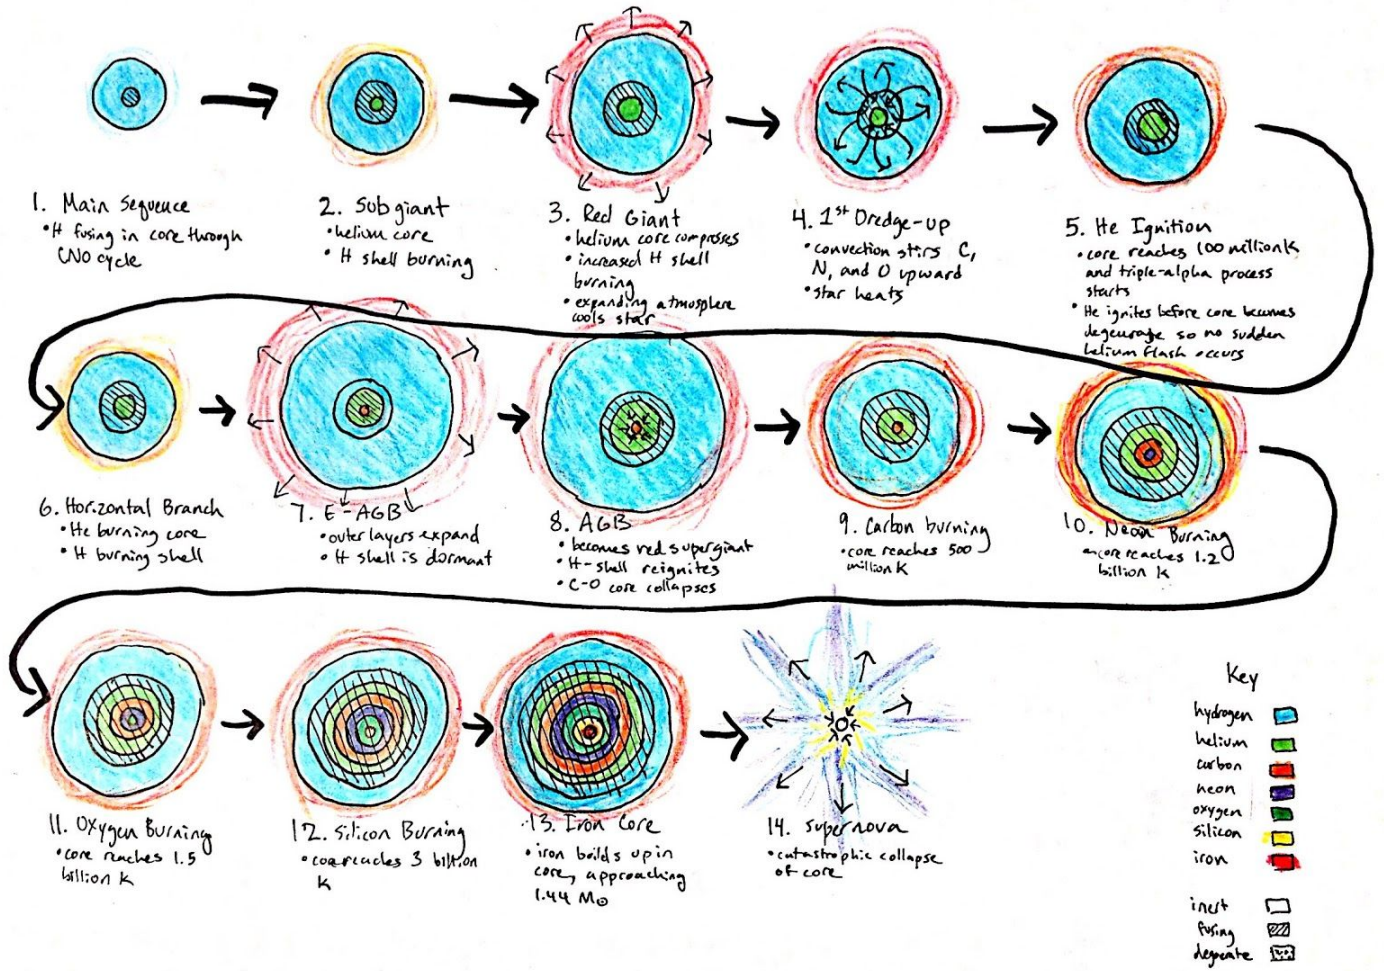 1. Main Sequence
• H fusing in core through
CNO cycle
2. Subgiant
• helium core
• H shell burning
3. Red Giant
• helium core compresses
• increased H shell
burning
• expanding atmosphere
cools star
4. 1st Dredge-up
• convection stirs C,
N, and O upward
• star heats
5. He Ignition
• core reaches 100 million K
and triple-alpha process
starts
• He ignites before core becomes
degeurate so no sudden
helium flash occurs
6. Horizontal Branch
• He burning core
• H burning shell
7. E-AGB
• outer layers expand
• H shell is dormant
8. AGB
• becomes red supergiant
• H-shell reignites
• C-O core collapses
9. Carbon burning
• core reaches 500
million K
10. Neon Burning
• core reaches 1.2
billion K
11. Oxygen Burning
• core reaches 1.5
billion K
12. Silicon Burning
• core reaches 3 billion
K
13. Iron Core
• iron builds up in
core, approaching
1.44 M⊙
14. Supernova
• catastrophic collapse
of core
Key
hydrogen
helium
carbon
neon
oxygen
silicon
iron
inert
fusing
degerate